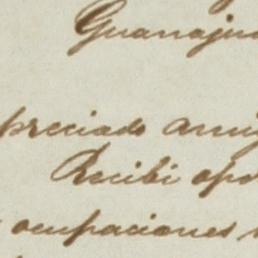 Guanaju
preciado ami
Recibi opo
ocupaciones